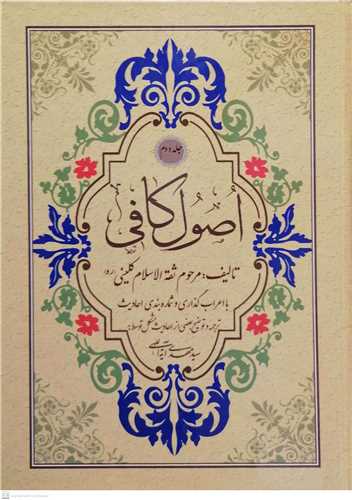 جلد دوم
اصول کافی
تالیف: مرحوم ثقة الاسلام کلینی (ره)
با اعراب گذاری و شماره بندی احادیث
ترجمه و توضیح بعضی از احادیث مشکل توسط:
سید مهدی آیت اللهی